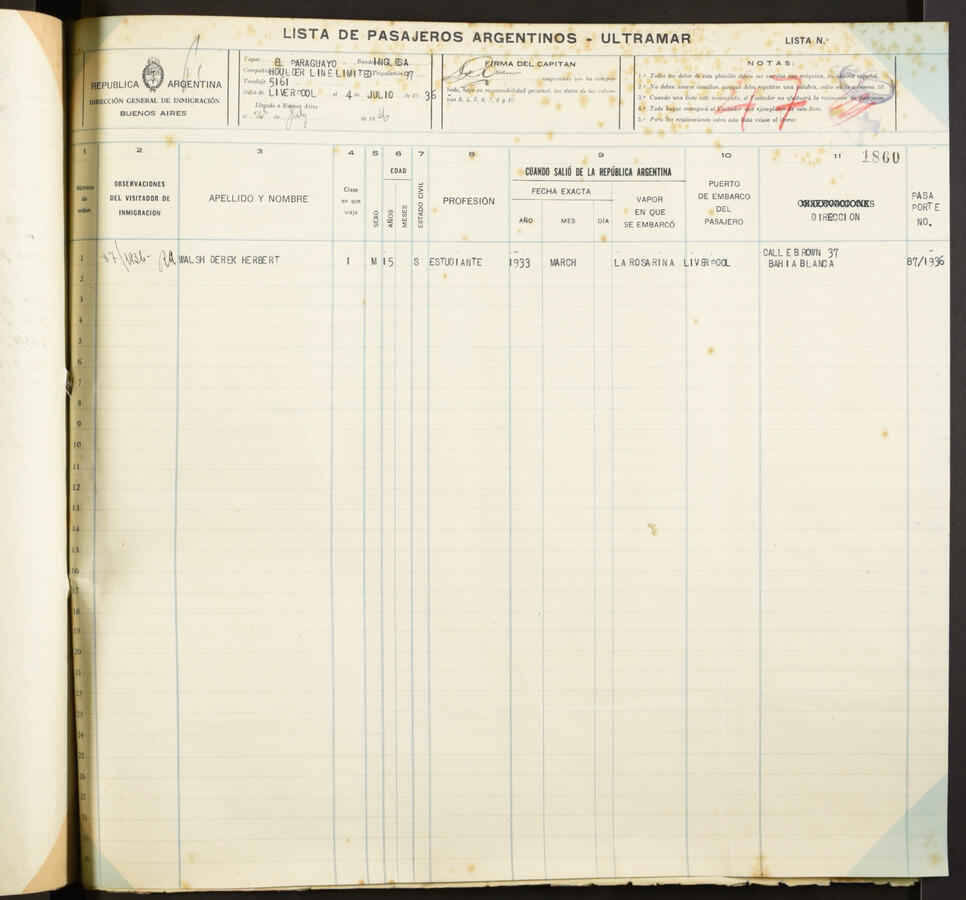 LISTA DE PASAJEROS ARGENTINOS - ULTRAMAR
LISTA N.
REPUBLICA ARGENTINA
DIRECCIÓN GENERAL DE INMIGRACIÓN
BUENOS AIRES
Vapor EL PARAGUAYO Bandera INGLESA
Compañía HOULDER LINE LIMITED Tripulación 97
Tonelaje 5161
Salió de LIVERPOOL el 4 de JULIO de 1936
Llegado a Buenos Aires
el de July de 1936
FIRMA DEL CAPITAN
asegurando que ha comprobado, bajo su responsabilidad personal, los datos de las columnas 3, 4, 5, 6, 7, 8 y 10.
NOTAS:
1.° Todos los datos de esta planilla deben ser escritos con máquina, en idioma español.
2.° No deben usarse comillas, aunque deba repetirse una palabra, salvo en la columna 10.
3.° Cuando una lista esté incompleta, el Visitador no efectuará la revisación de pasajeros.
4.° Todo buque entregará al Visitador dos ejemplares de esta lista.
5.° Para las explicaciones sobre esta lista véase al dorso.
1 2 3 4 5 6 7 8 9 10 11 1860
Número de orden
OBSERVACIONES DEL VISITADOR DE INMIGRACIÓN
APELLIDO Y NOMBRE
Clase en que viaja
SEXO
EDAD
AÑOS
MESES
ESTADO CIVIL
PROFESIÓN
CUANDO SALIÓ DE LA REPÚBLICA ARGENTINA
FECHA EXACTA
AÑO MES DÍA
VAPOR EN QUE SE EMBARCÓ
PUERTO DE EMBARCO DEL PASAJERO
OBSERVACIONES
DIRECCION
PASAPORTE NO.
1 87/1936- RA WALSH DEREK HERBERT 1 M 15 S ESTUDIANTE 1933 MARCH LA ROSARINA LIVERPOOL CALLE BROWN 37 BAHIA BLANCA 87/1936
2
3
4
5
6
7
8
9
10
11
12
13
14
15
16
17
18
19
20
21
22
23
24
25
26
27
28
29
30